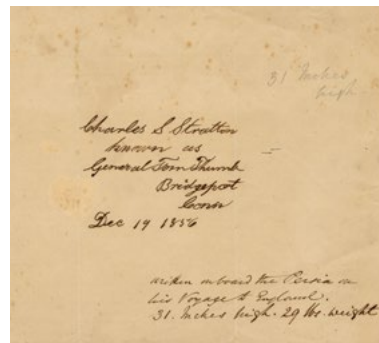 31 Inches
high.
Charles S Stratton
known as
General Tom Thumb
Bridgeport
Conn
Dec 19 1856
written onboard the Persia on
his Voyage to England.
31. Inches high. 29 lbs. weight